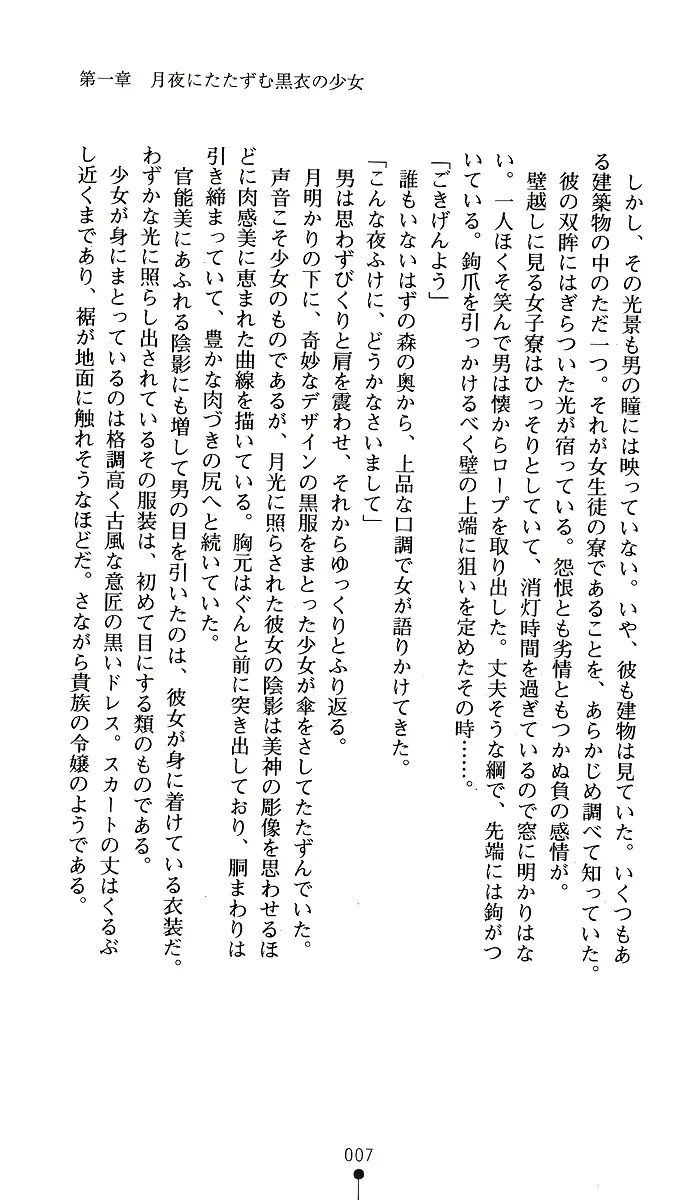 第一章　月夜にたたずむ黒衣の少女
　しかし、その光景も男の瞳には映っていない。いや、彼も建物は見ていた。いくつもあ
る建築物の中のただ一つ。それが女生徒の寮であることを、あらかじめ調べて知っていた。
　彼の双眸にはぎらついた光が宿っている。怨恨とも劣情ともつかぬ負の感情が。
　壁越しに見る女子寮はひっそりとしていて、消灯時間を過ぎているので窓に明かりはな
い。一人ほくそ笑んで男は懐からロープを取り出した。丈夫そうな綱で、先端には鉤がつ
いている。鉤爪を引っかけるべく壁の上端に狙いを定めたその時……。
「ごきげんよう」
　誰もいないはずの森の奥から、上品な口調で女が語りかけてきた。
「こんな夜ふけに、どうかなさいまして」
　男は思わずびくりと肩を震わせ、それからゆっくりとふり返る。
　月明かりの下に、奇妙なデザインの黒服をまとった少女が傘をさしてたたずんでいた。
　声音こそ少女のものであるが、月光に照らされた彼女の陰影は美神の彫像を思わせるほ
どに肉感美に恵まれた曲線を描いている。胸元はぐんと前に突き出しており、胴まわりは
引き締まっていて、豊かな肉づきの尻へと続いていた。
　官能美にあふれる陰影にも増して男の目を引いたのは、彼女が身に着けている衣装だ。
わずかな光に照らし出されているその服装は、初めて目にする類のものである。
　少女が身にまとっているのは格調高く古風な意匠の黒いドレス。スカートの丈はくるぶ
し近くまであり、裾が地面に触れそうなほどだ。さながら貴族の令嬢のようである。
007